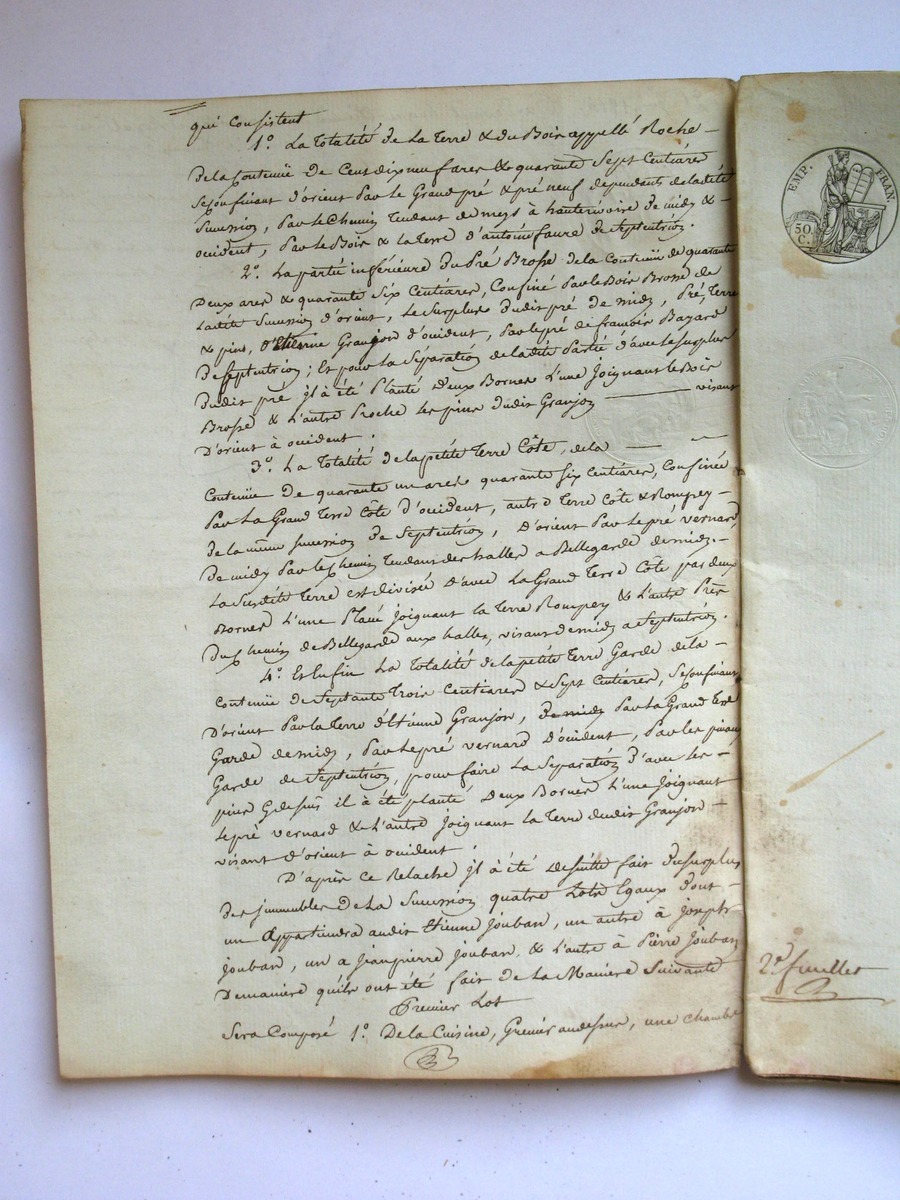 qui Consistent
1.º La Totalité de La Terre & du Bois appellé Roche –
De la Contenüe De Cent dix neuf ares & quarante Sept Centiares
Se Confinant d'orient Par le Grand pré & pré neuf dependants de ladite
Succession, Par le Chemin Tendant de meys à hauterivoire De midy & –
occident, Par le Bois & la Terre d'antoine faure De Septentrion.
2.º La partie inférieure Du Pré Brosse De la Contenüe de quarante
Deux ares & quarante Six Centiares, Confiné Par le Bois Brosse de
Ladite Succession d'orient, Le Surplus Dudit pré De midy, Pré, Terre
& pins, d'Etienne Granjon d'occident, Par le pré de francois Bazard
De Septentrion; Et pour la Séparation de ladite Partie d'avec le Surplus
Dudit pré il à été Planté Deux Bornes L'une Joignant le Bois
Brosse & L'autre Proche les pins Dudit Granjon —— visant
D'orient à occident.
3.º La Totalité de la petite Terre Côte, de la —
Contenüe De quarante un ares quarante Six Centiares, Confinée
Par La Grand Terre Côte d'occident, autre Terre Côte & Rompey –
De la même Succession De Septentrion, D'orient Par le pré vernard,
De midy Par le Chemin Tendant des halles a Bellegarde De midy. –
La Susdite Terre est divisée D'avec La Grand Terre Côte par deux
Bornes L'une Placé joignant la Terre Rompey & L'autre Près
Du Chemin de Bellegarde aux halles, visant De midy a Septentrion.
4.º Et Enfin La Totalité de la petite Terre Garde de la –
Contenüe De Septante Trois Centiares & Sept Centiares, Se Confinant
D'orient Par la Terre d'Etienne Granjon, De midy Par la Grand Terre
Garde De midy, Par le pré vernard D'occident, Par les pins
Garde de Septentrion, pour faire La Séparation D'avec les –
pins il à été planté Deux Bornes L'une Joignant
Le pré vernard & L'autre Joignant la Terre dudit Granjon –
visant d'orient à occident.
D'après ce Relaché il à été De suitte fait Du Surplus
Des Immeubles De La Succession quatre Lots Egaux dont –
un Appartiendra audit Etienne Jouban, un autre à Joseph
Jouban, un a Jean pierre Jouban, & L'autre à Pierre Jouban
De maniere qu'ils ont été fait De La Maniere Suivante
Premier Lot
Sera Composé 1.º De la Cuisine, Grenier au dessus, une Chambre
EMP. FRAN.
50
C.
2.e feuillet